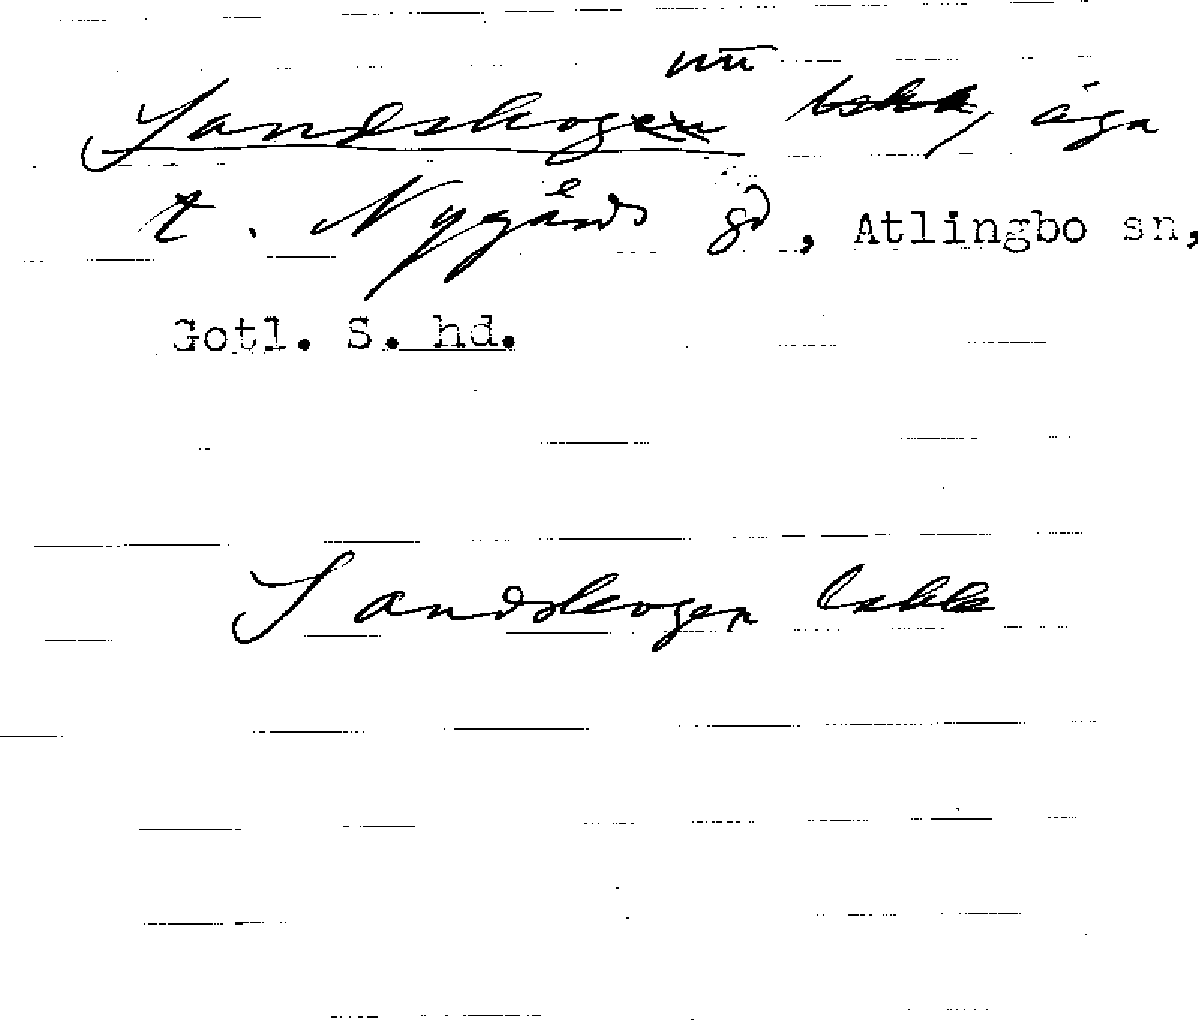 nū
Sandskogen bskk, äga
t. Nygårds gd, Atlingbo sn,
Gotl. S. hd.
Sandskogen bskk